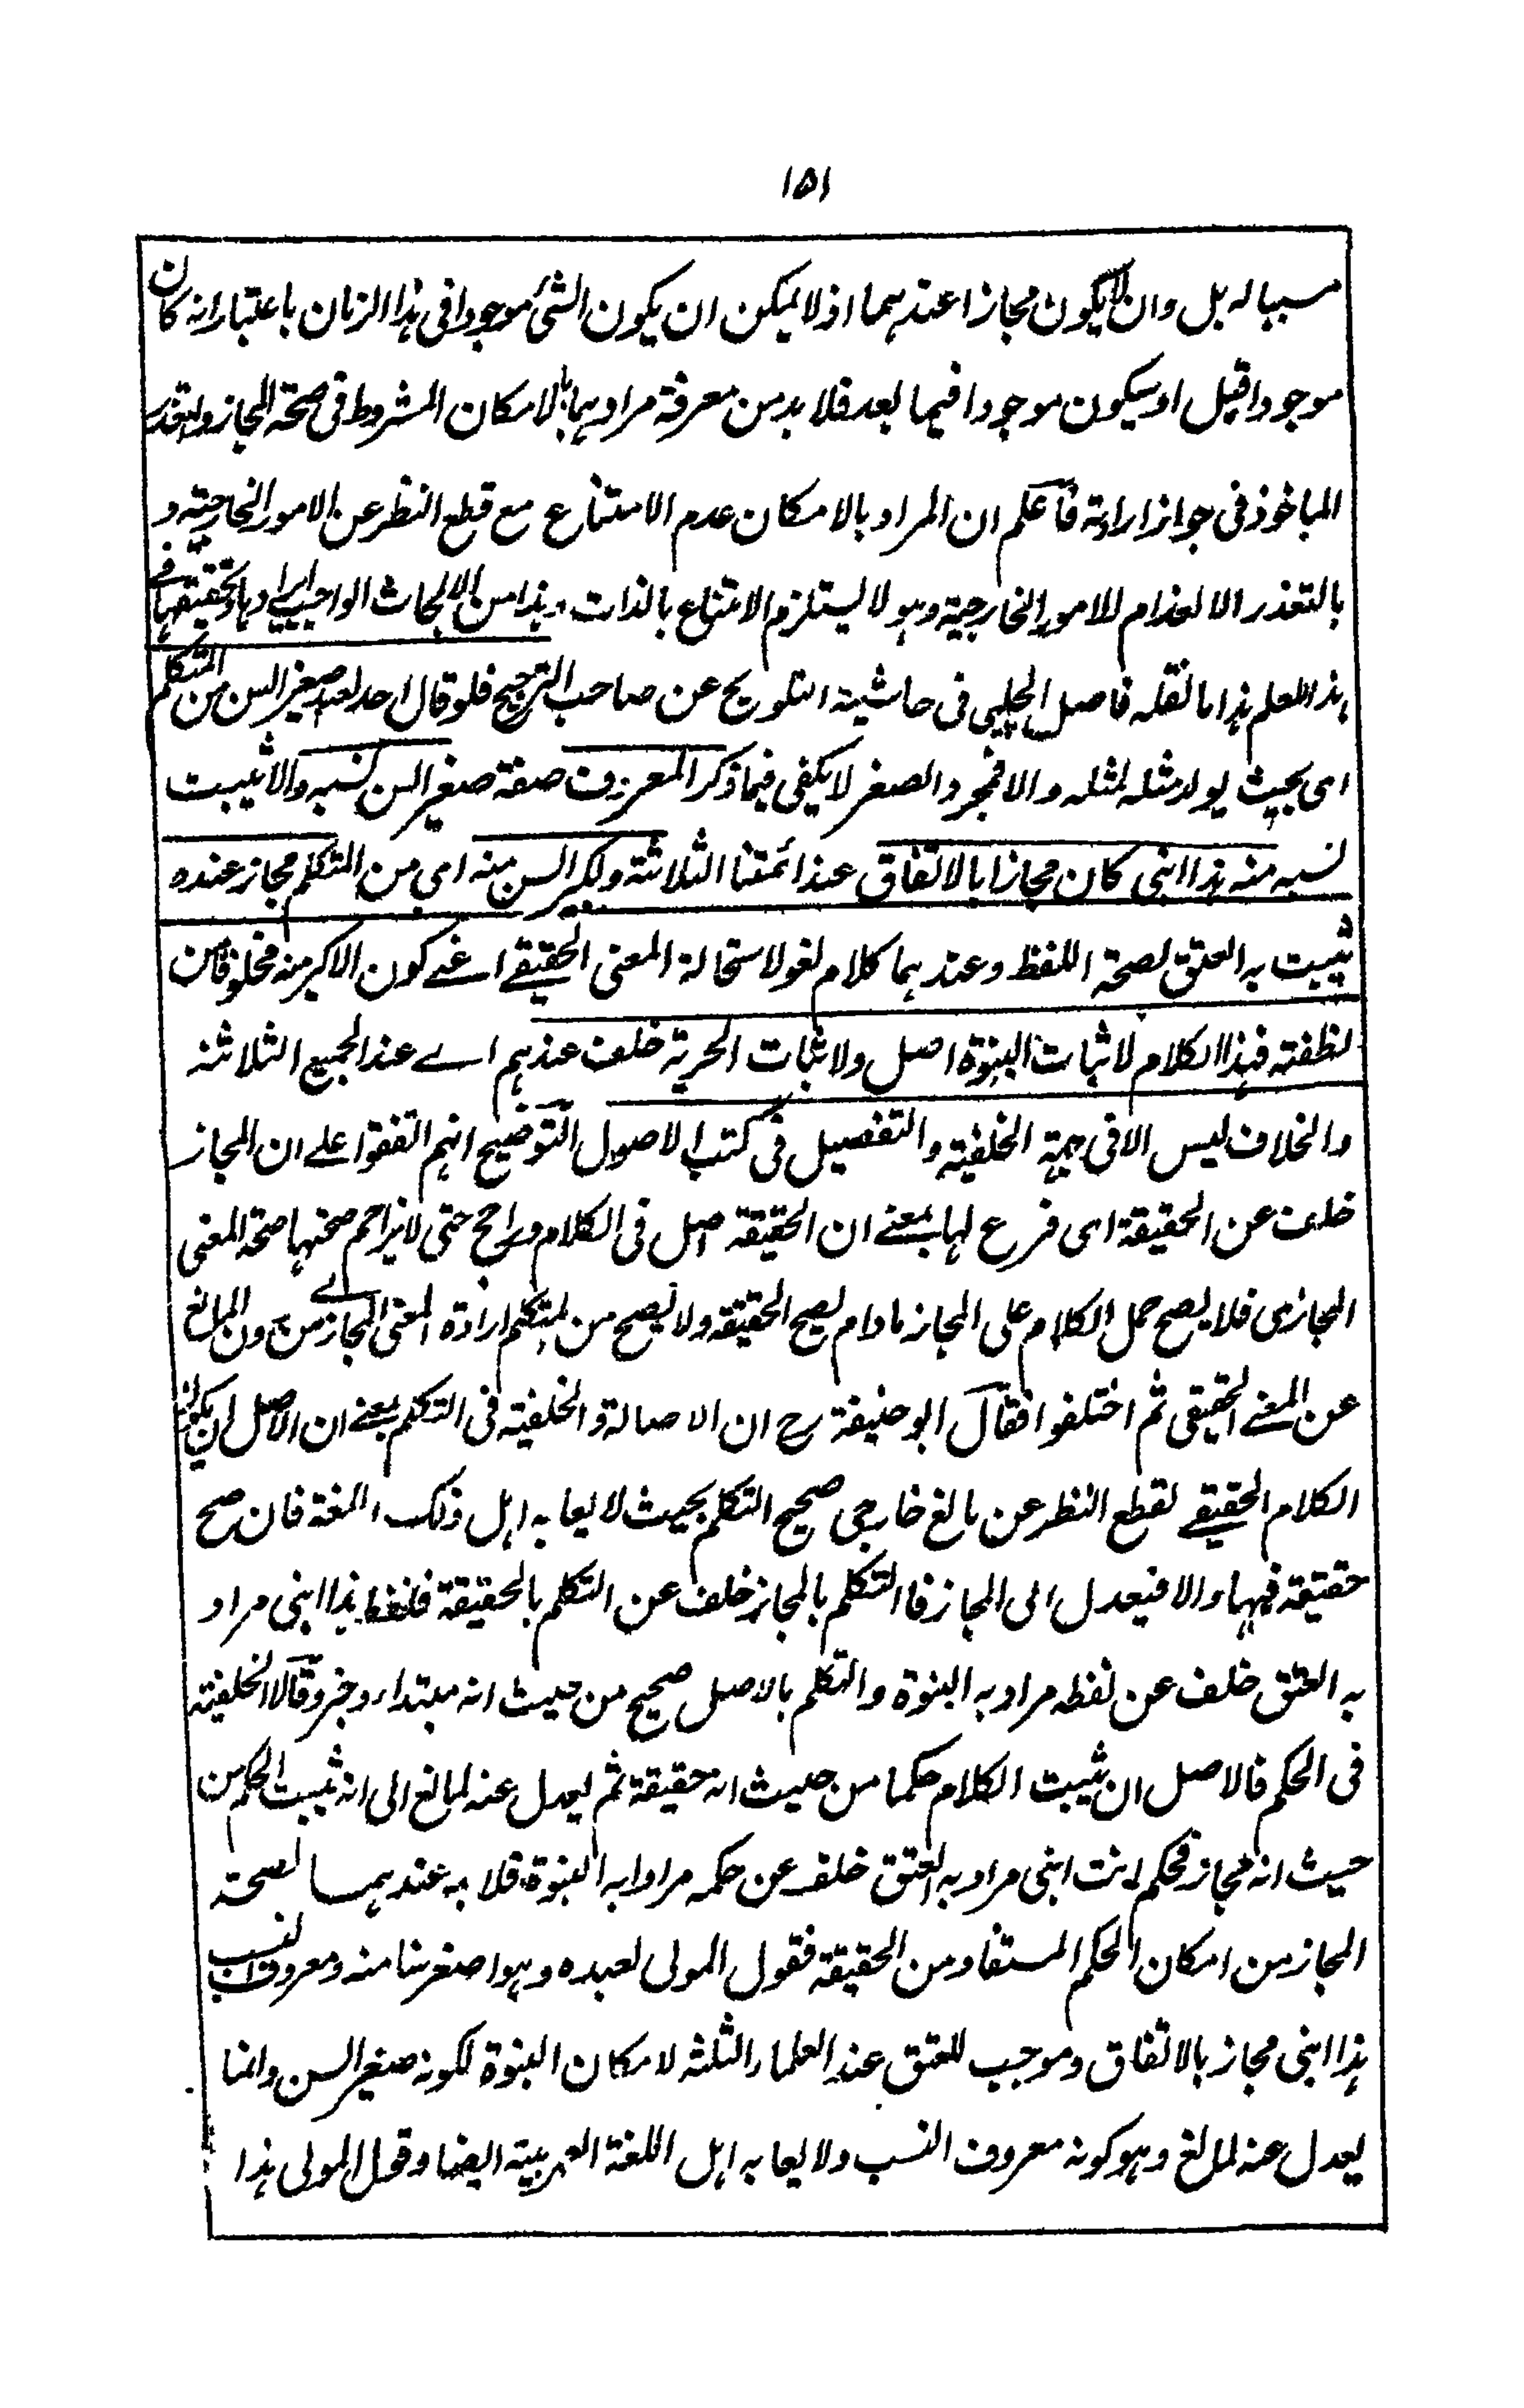 ١٥١
سببا له بل وان لا يكون مجازا عندهما اذ لا يمكن ان يكون الشئ موجودا فى هذا الزمان باعتبار انه كان
موجودا قبل او سيكون موجودا فيما بعد فلا بد من معرفة مرادهما بالامكان المشروط فى صحة المجاز والتعذر
الماخوذ فى جواز ارادته فاعلم ان المراد بالامكان عدم الامتناع مع قطع النظر عن الامور الخارجية و
بالتعذر الانعدام للامور الخارجية وهو لا يستلزم الامتناع بالذات وهذا من الابحاث الواجب ايرادها وتحقيقها فى
هذا المعلم هذا ما نقله فاضل الچلپى فى حاشية التلويح عن صاحب الترجيح فلو قال احد لعبد صغير السن من المتكلم
اى بحيث يولد مثله لمثله والا فمجرد الصغر لا يكفى فيما ذكر المعروف صفة صغير السن نسبه والا يثبت
نسبه منه هذا ابنى كان مجازا بالاتفاق عند ائمتنا الثلاثة ولكبير السن منه اى من المتكلم مجاز عنده
يثبت به العتق لصحة اللفظ وعندهما كلام لغو لاستحالة المعنى الحقيقے اعنے كون الاكبر منه مخلوقا من
نطفته فهذا الكلام لاثبات البنوة اصل ولاثبات الحرية خلف عندهم اے عند الجميع الثلاثة
والخلاف ليس الا فى جهة الخلفية والتفصيل فى كتب الاصول التوضيح انهم اتفقوا علے ان المجاز
خلف عن الحقيقة اى فرع لها بمعنے ان الحقيقة اصل فى الكلام وراجح حتى لا يزاحم صحتها صحة المعنى
المجازى فلا يصح حمل الكلام على المجاز ما دام يصح الحقيقة ولا يصح من المتكلم ارادة المعنى المجازے من دون المانع
عن المعنے الحقيقى ثم اختلفوا فقال ابو حنيفة رح ان الاصالة والخلفية فى التكلم بمعنے ان الاصل ان يكون
الكلام الحقيقے لقطع النظر عن مانع خارجى صحيح التكلم بحيث لا يعابه اهل ذلك اللغة فان صح
حقيقة فبها والا فيعدل الى المجاز فالتكلم بالمجاز خلف عن التكلم بالحقيقة فلفظ هذا ابنى مراد
به العتق خلف عن لفظه مراد به البنوة والتكلم بالاصل صحيح من حيث انه مبتداء وخبر وقالا الخلفية
فى الحكم فالاصل ان يثبت الكلام حكما من حيث انه حقيقة ثم يعدل عنه لمانع الى انه يثبت الحكم من
حيث انه مجاز فحكم انت ابنى مراد به العتق خلف عن حكمه مرادا به البنوة فلا بد عندهما لصحة
المجاز من امكان الحكم المستفاد من الحقيقة فقول المولى لعبده وهو اصغر سنا منه ومعروف النسب
هذا ابنى مجاز بالاتفاق وموجب للعتق عند العلماء الثلثة لامكان البنوة لكونه صغير السن وانما
يعدل عنه لمانع وهو كونه معروف النسب ولا يعابه اهل اللغة العربية ايضا وقول المولى هذا